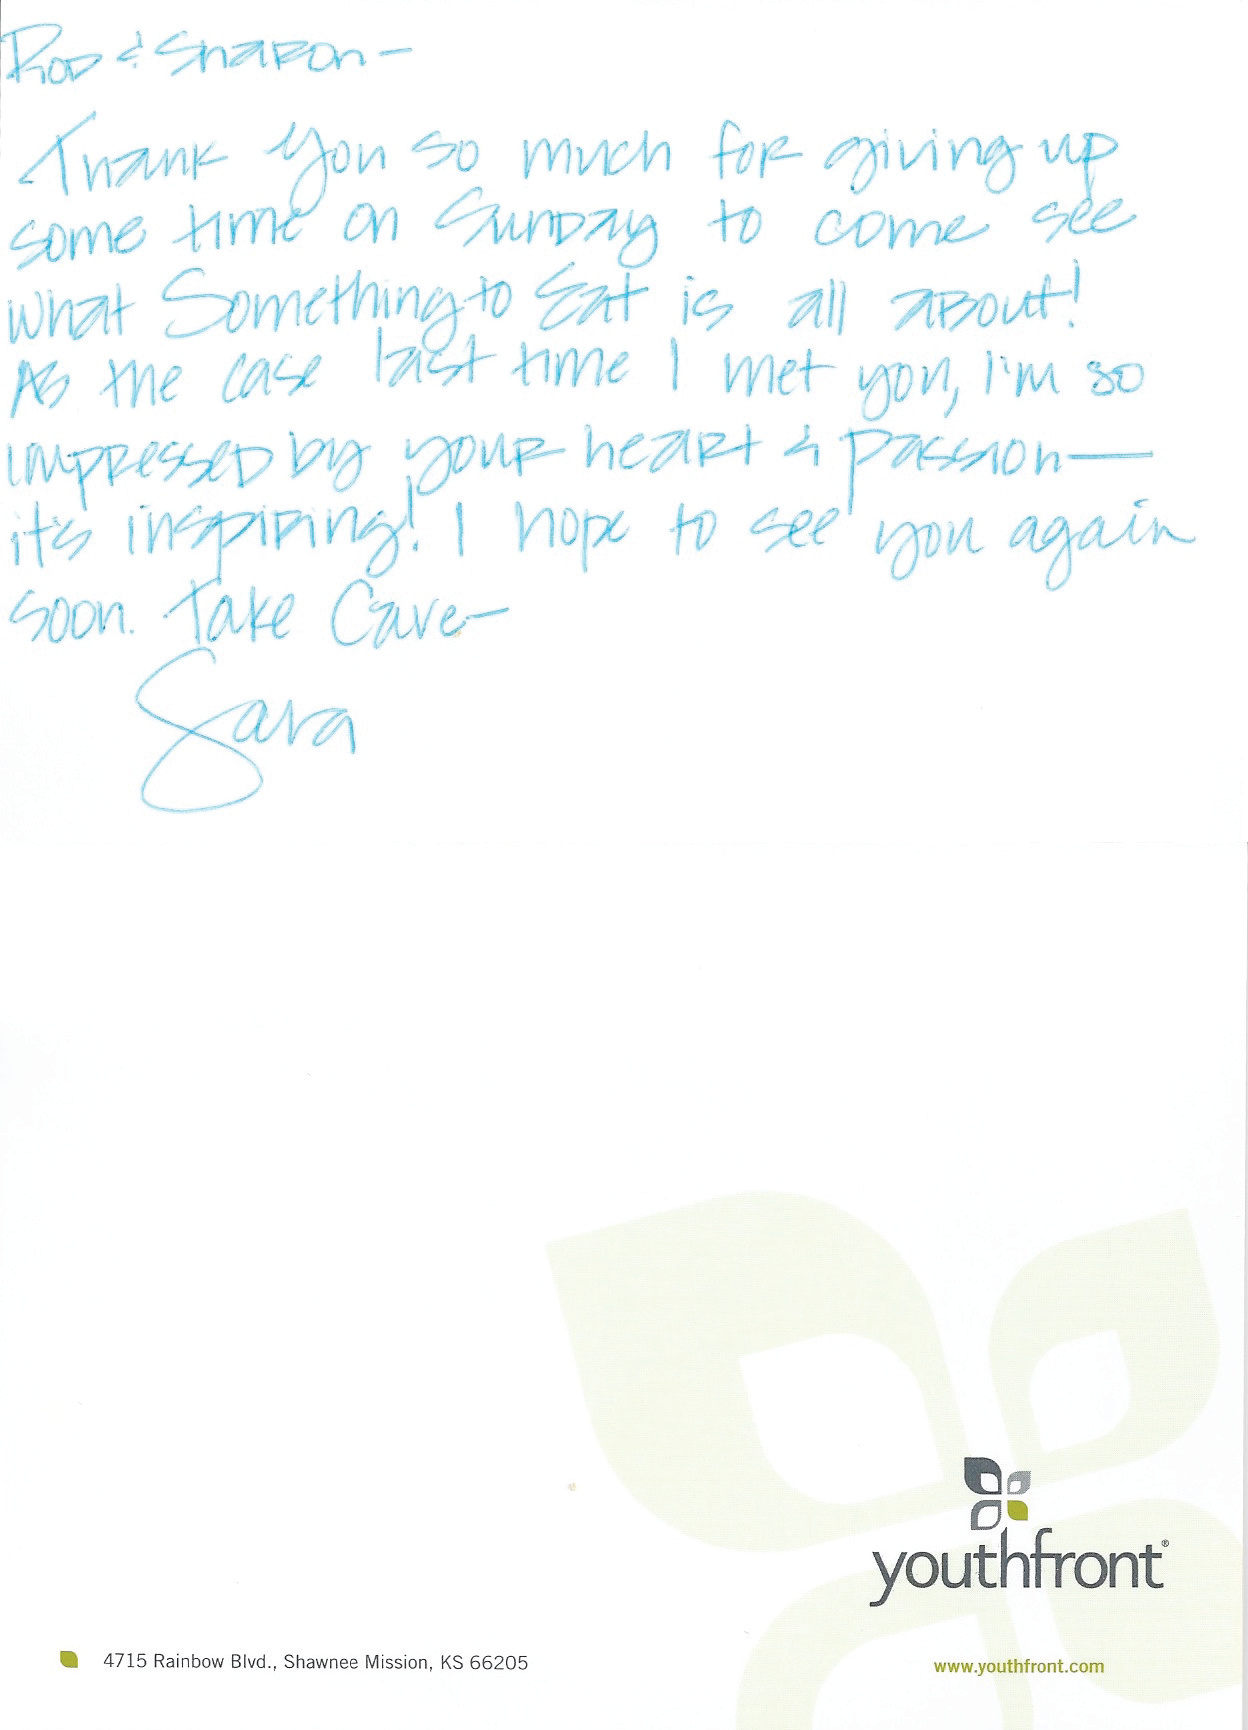 Rod & Sharon -
Thank you so much for giving up
some time on Sunday to come see
what Something to Eat is all about!
As the case last time I met you, I'm so
impressed by your heart & passion—
it's inspiring! I hope to see you again
soon. Take Care-
Sara
youthfront®
4715 Rainbow Blvd., Shawnee Mission, KS 66205
www.youthfront.com